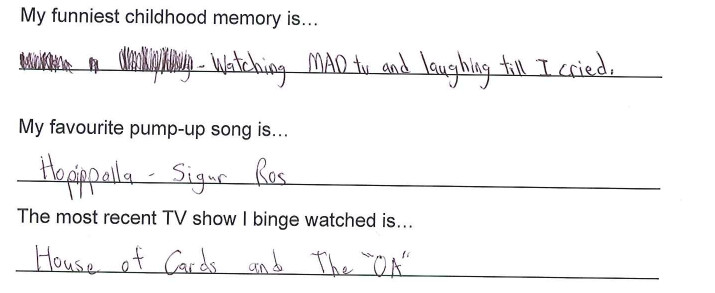 My funniest childhood memory is...
- Watching MAD tv and laughing till I cried.
My favourite pump-up song is...
Hopippolla - Sigur Ros
The most recent TV show I binge watched is...
House of Cards and The "OA"